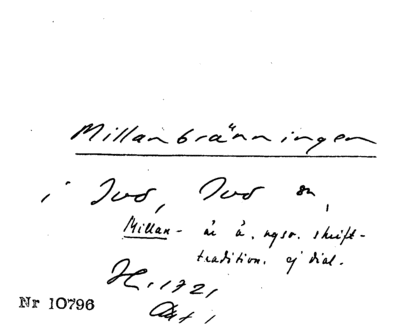 Millanbränningen
i Ivö, Ivö sn,
Millan - är å. nysv. skrift-
tradition. ej dial.
H. 1721
Akt 1
Nr 10796